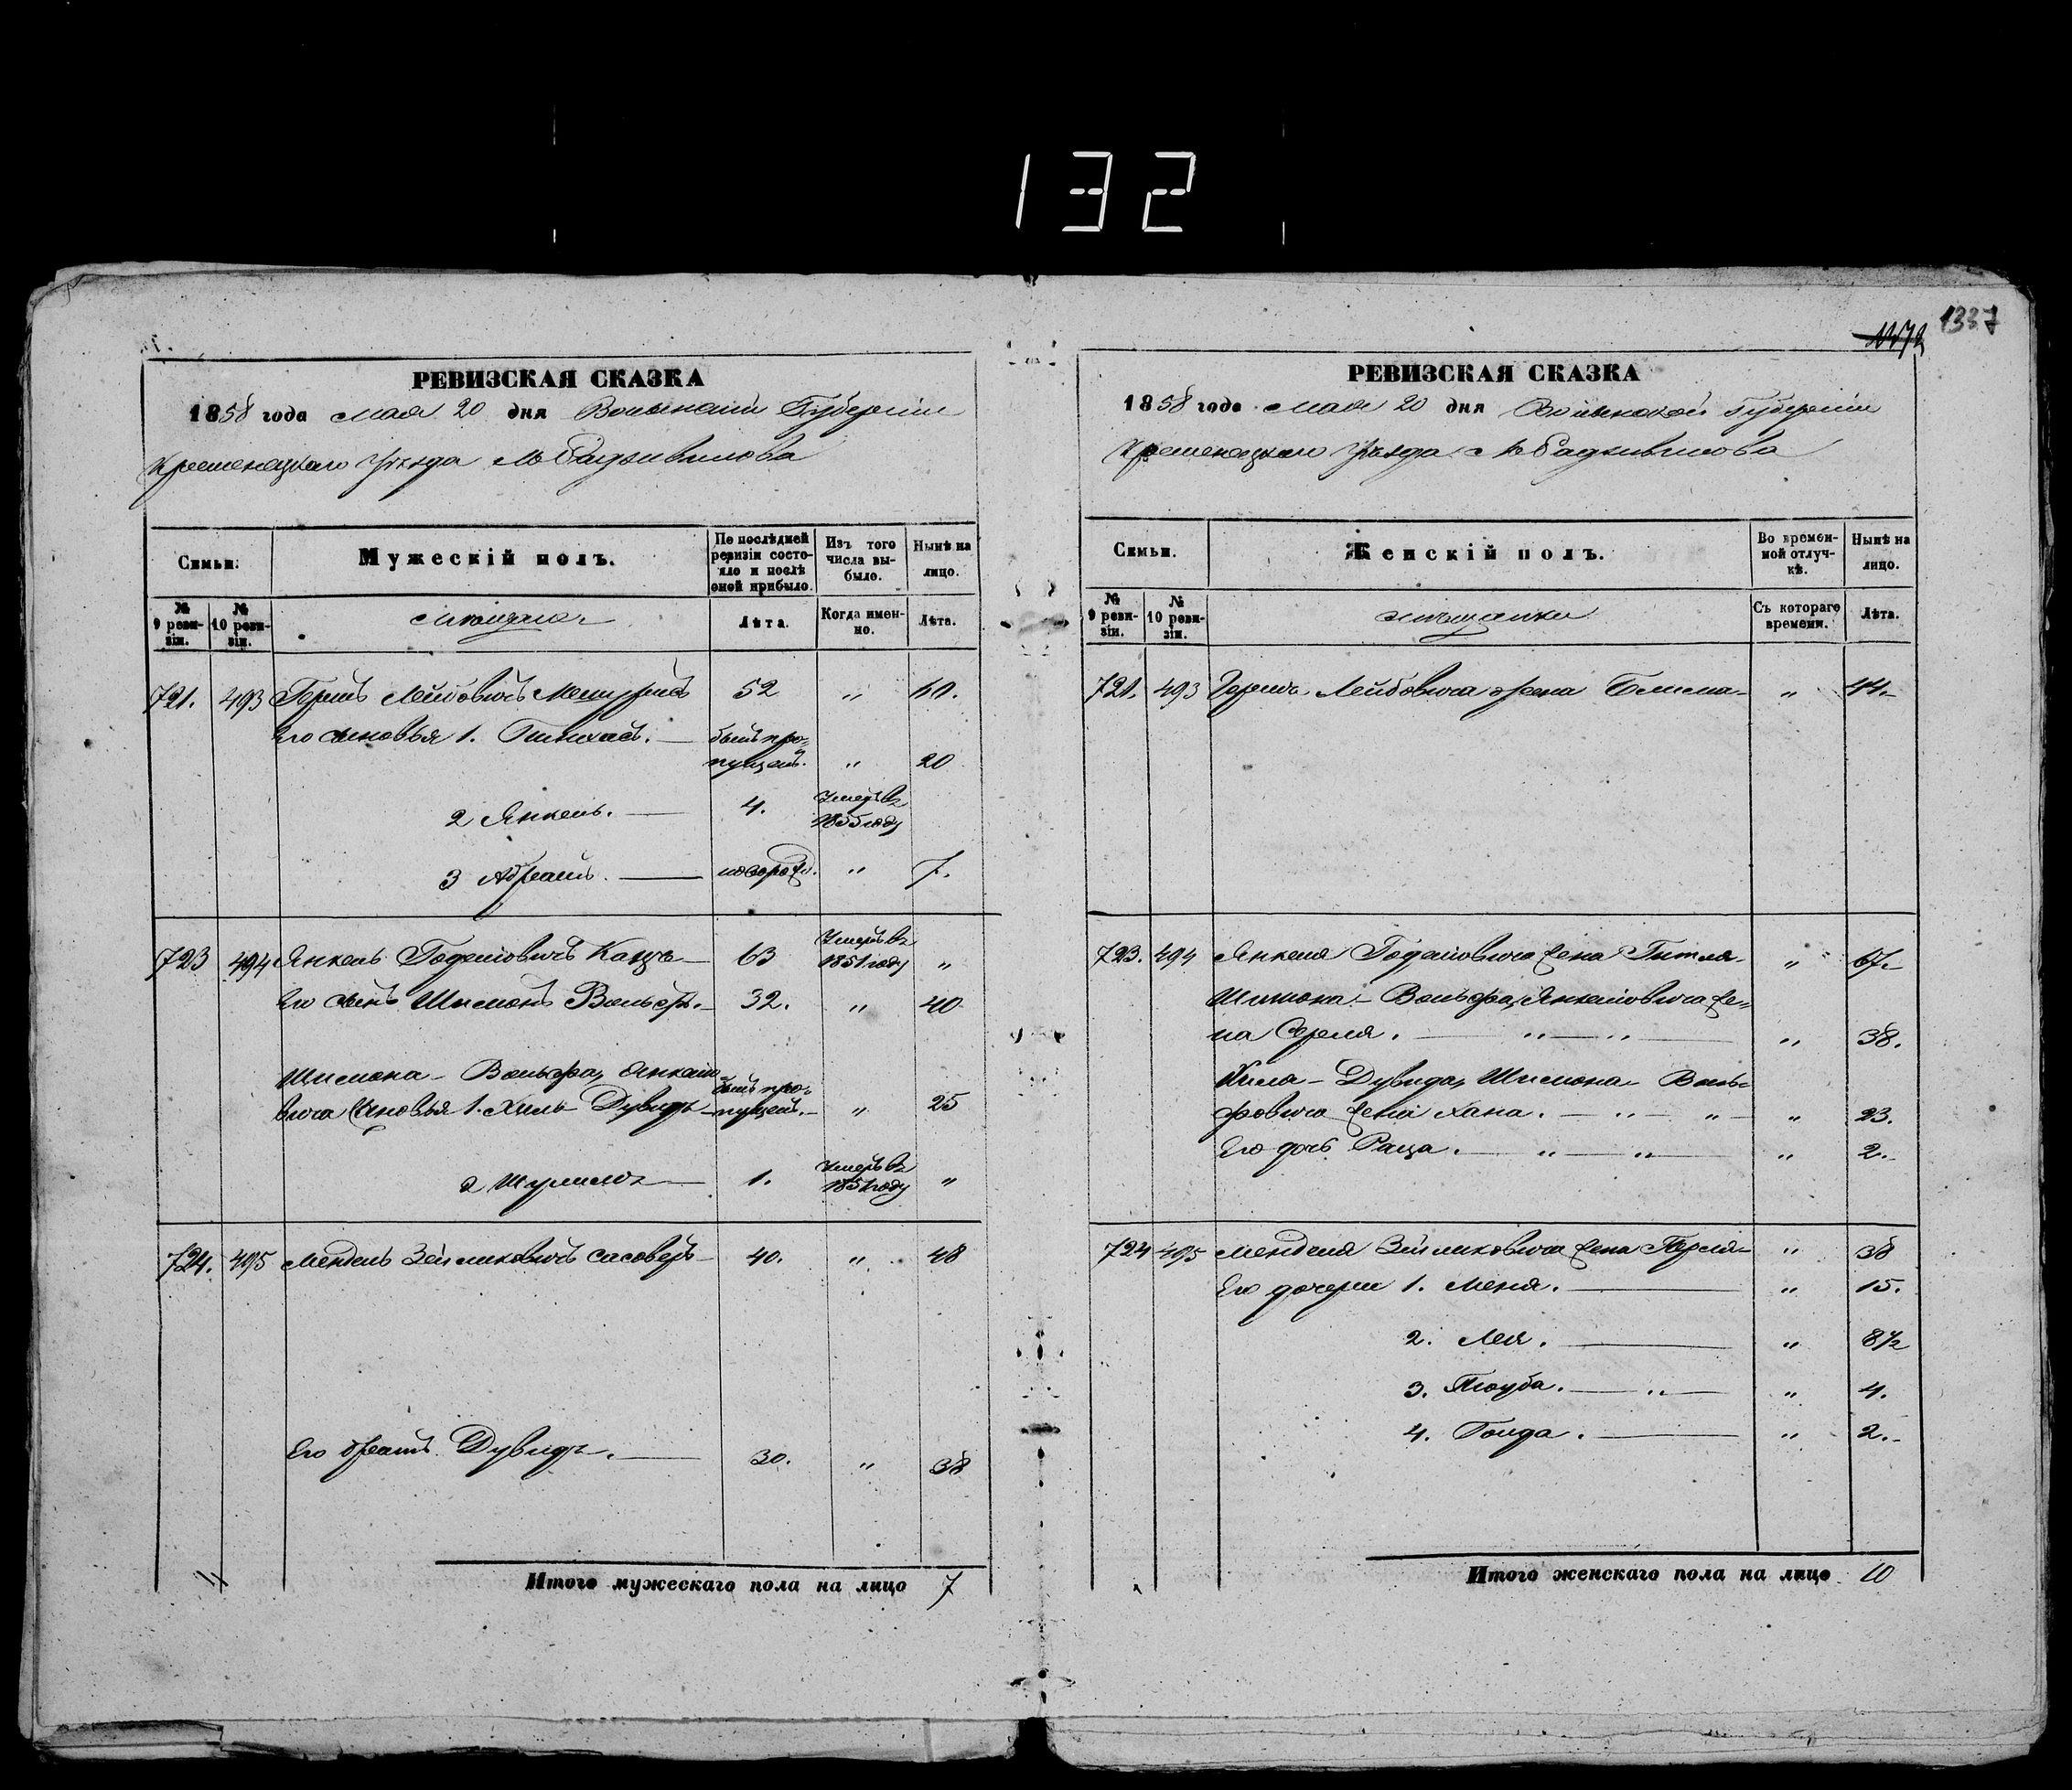 132
1337
РЕВИЗСКАЯ СКАЗКА
1858 года мая 20 дня Волынской Губерніи
Кременецкаго Уѣзда м. Радзивилова
Семьи. Мужескій полъ. По послѣдней ревизіи состояло и послѣ оной прибыло. Изъ того числа выбыло. Нынѣ на лицо.
№ 9 ревизіи. № 10 ревизіи. Мѣщане Лѣта. Когда именно. Лѣта.
721. 493 Гершъ Лейбовичъ 52 " 60.
Его сыновья 1. Пинхасъ. былъ про-
пущенъ. " 20
2 Янкель. 4. Умеръ въ
1855 году
3 Абрамъ. новорожд. " 7.
723 494 Янкель Годелiовичъ Кацъ 63 Умеръ въ
1851 году "
Его сынъ Шимонъ Вольфъ. 32. " 40
Шимона - Вольфа Янкелiо-
вича сыновья 1. Хиль Дувидъ былъ про-
пущенъ. " 25
2 Шулимъ 1. Умеръ въ
1851 году "
724. 495 Мендель Зейликовичъ Сасоверъ 40. " 48
Его братъ Дувидъ. 30. " 38
Итого мужескаго пола на лицо 7
РЕВИЗСКАЯ СКАЗКА
1858 года мая 20 дня Волынской Губерніи
Кременецкаго Уѣзда м. Радзивилова
Семьи. Женскій полъ. Во временной отлучкѣ. Нынѣ на лицо.
№ 9 ревизіи. № 10 ревизіи. мѣщанки Съ котораго времени. Лѣта.
721. 493 Герша Лейбовича жена Блима " 44.
723. 494 Янкеля Годелiовича жена Гитля " 67.
Шимона - Вольфа Янкелiовича же-
на Сереля. " " " 38.
Хиля - Дувида Шимона - Воль-
фовича жена Хана. " " " 23.
Его дочь Раца. " " " 2.
724 495 Менделя Зейликовича жена Перля " 38
Его дочери 1. Меня. " 15.
2. Лея. " 8½
3. Тауба. " " 4.
4. Голда. " 2.
Итого женскаго пола на лицо 10